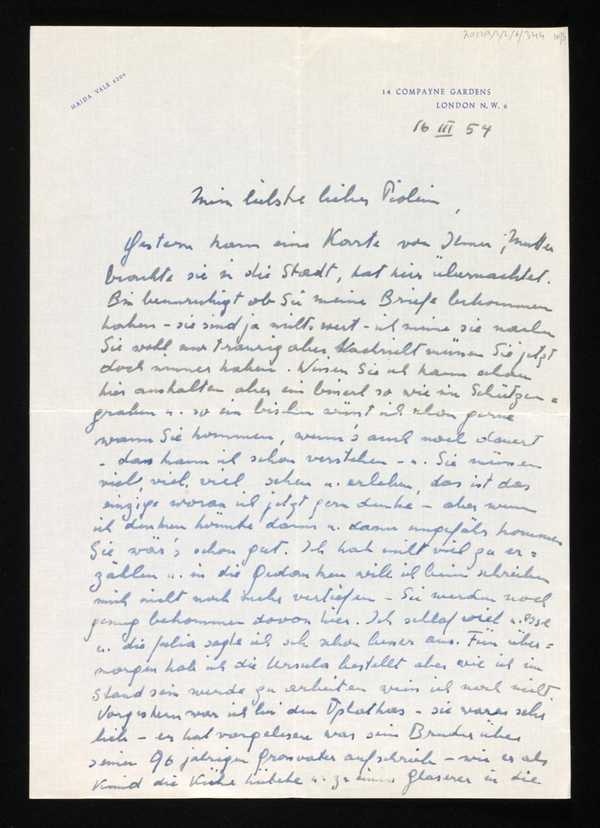 MAIDA VALE 6209
14 COMPAYNE GARDENS
LONDON N.W. 6
16 III 54
Mein liebster lieber
Gestern kam eine Karte von Ihnen, Mutter
brachte sie in die Stadt, hat hier übernachtet.
Bin beunruhigt ob Sie meine Briefe bekommen
haben – sie sind ja nichts wert – ich meine sie machen
Sie wohl nur traurig aber Nachricht müssen Sie jetzt
doch immer haben. Wissen Sie ich kann schon
hier aushalten aber ein bisserl so wie im Schützen=
graben u. so ein bisschen wüsst ich schon gerne
wann Sie kommen, wenn's auch noch dauert
– das kann ich schon verstehen – u. Sie müssen
viel, viel, viel sehen u. erleben, das ist das
einzige woran ich jetzt gern denke – aber wenn
ich denken könnte dann u. dann ungefähr kommen
Sie wär's schon gut. Ich hab nicht viel zu er=
zählen u. in die Gedanken will ich beim schreiben
mich nicht noch mehr vertiefen – Sie werden noch
genug bekommen davon hier. Ich schlaf viel u. esse
u. die Julia sagte ich seh schon besser aus. Für über=
morgen hab ich die Ursula bestellt aber wie ich im
Stand sein werde zu arbeiten weiss ich noch nicht.
Vorgestern war ich bei den – sie waren sehr
lieb – er hat vorgelesen was sein Bruder über
seinen 96 jährigen Grossvater aufschrieb – wie er als
Kind die Kühe hütete u. zu einem Glaserer in die